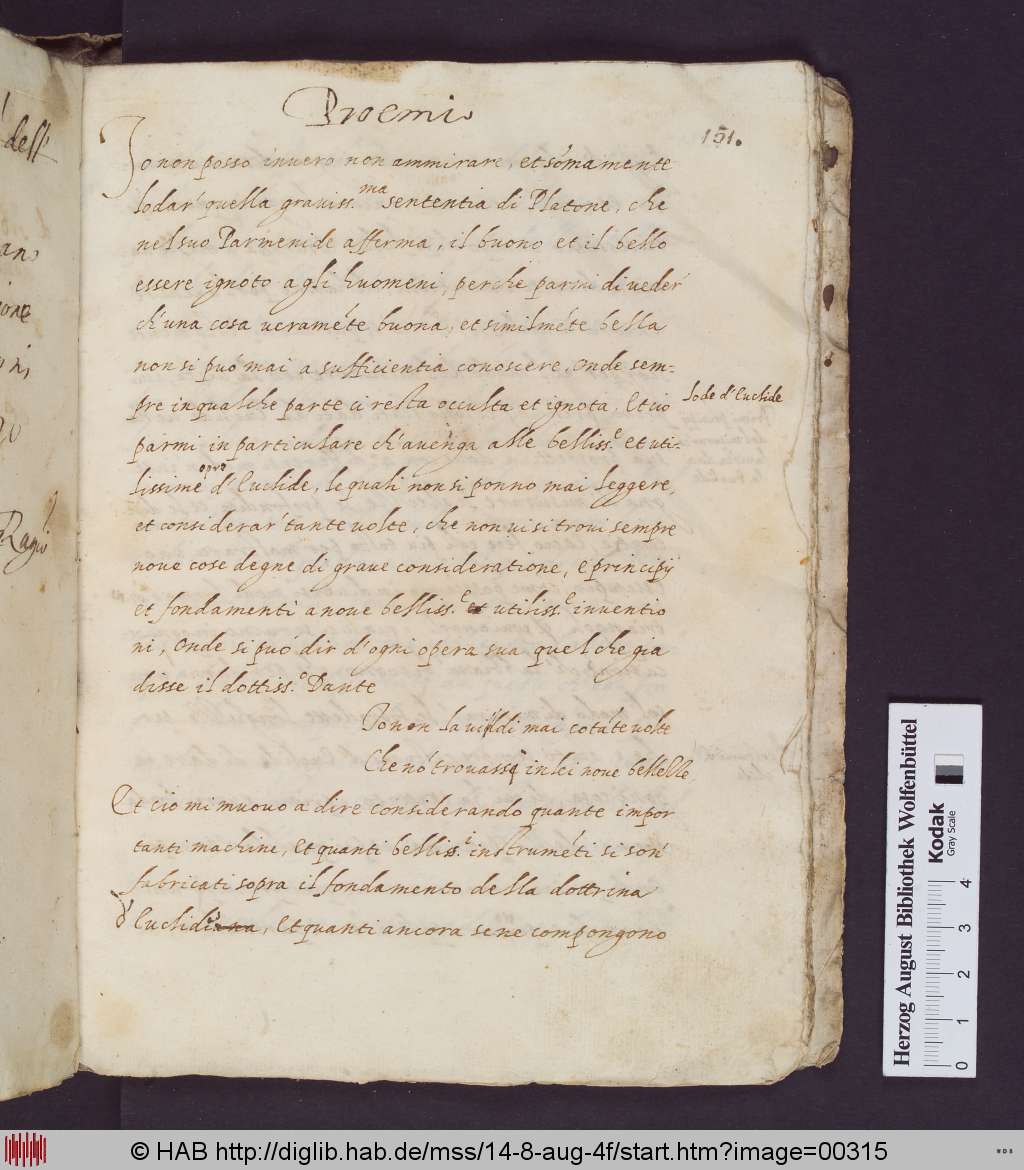 dell'
Ragio
Proemio
151.
Io non posso invero non ammirare, et sómamente
lodar' quella graviss.ma sententia di Platone, che
nel suo Parmenide afferma, il buono et il bello
essere ignoto agli huomeni, perche parmi di veder'
ch'una cosa veraméte buona, et similméte bella
non si può mai a sufficientia conoscere, onde sem-
pre in qualche parte ci resta occulta et ignota. Et ciò
lode d'Euclide
parmi in particulare ch'avenga alle belliss.e et uti-
lissime opre d'Euclide, le quali non si ponno mai leggere,
et considerar' tante volte, che non vi si trovi sempre
nove cose degne di grave consideratione, e principij
et fondamenti a nove belliss.e et utiliss.e inventio
ni, onde si può dir d'ogni opera sua quel che già
disse il dottiss.o Dante
Io non la vidi mai cotáte volte
Che nó trovassi in lei nove bellelle
Et ciò mi muovo a dire considerando quante impor
tanti machine, et quanti belliss.i instruméti si son'
fabricati sopra il fondamento della dottrina
d'Euclide, et quanti ancora se ne compongono
Herzog August Bibliothek Wolfenbüttel
Kodak
Gray Scale
0 1 2 3 4
© HAB http://diglib.hab.de/mss/14-8-aug-4f/start.htm?image=00315